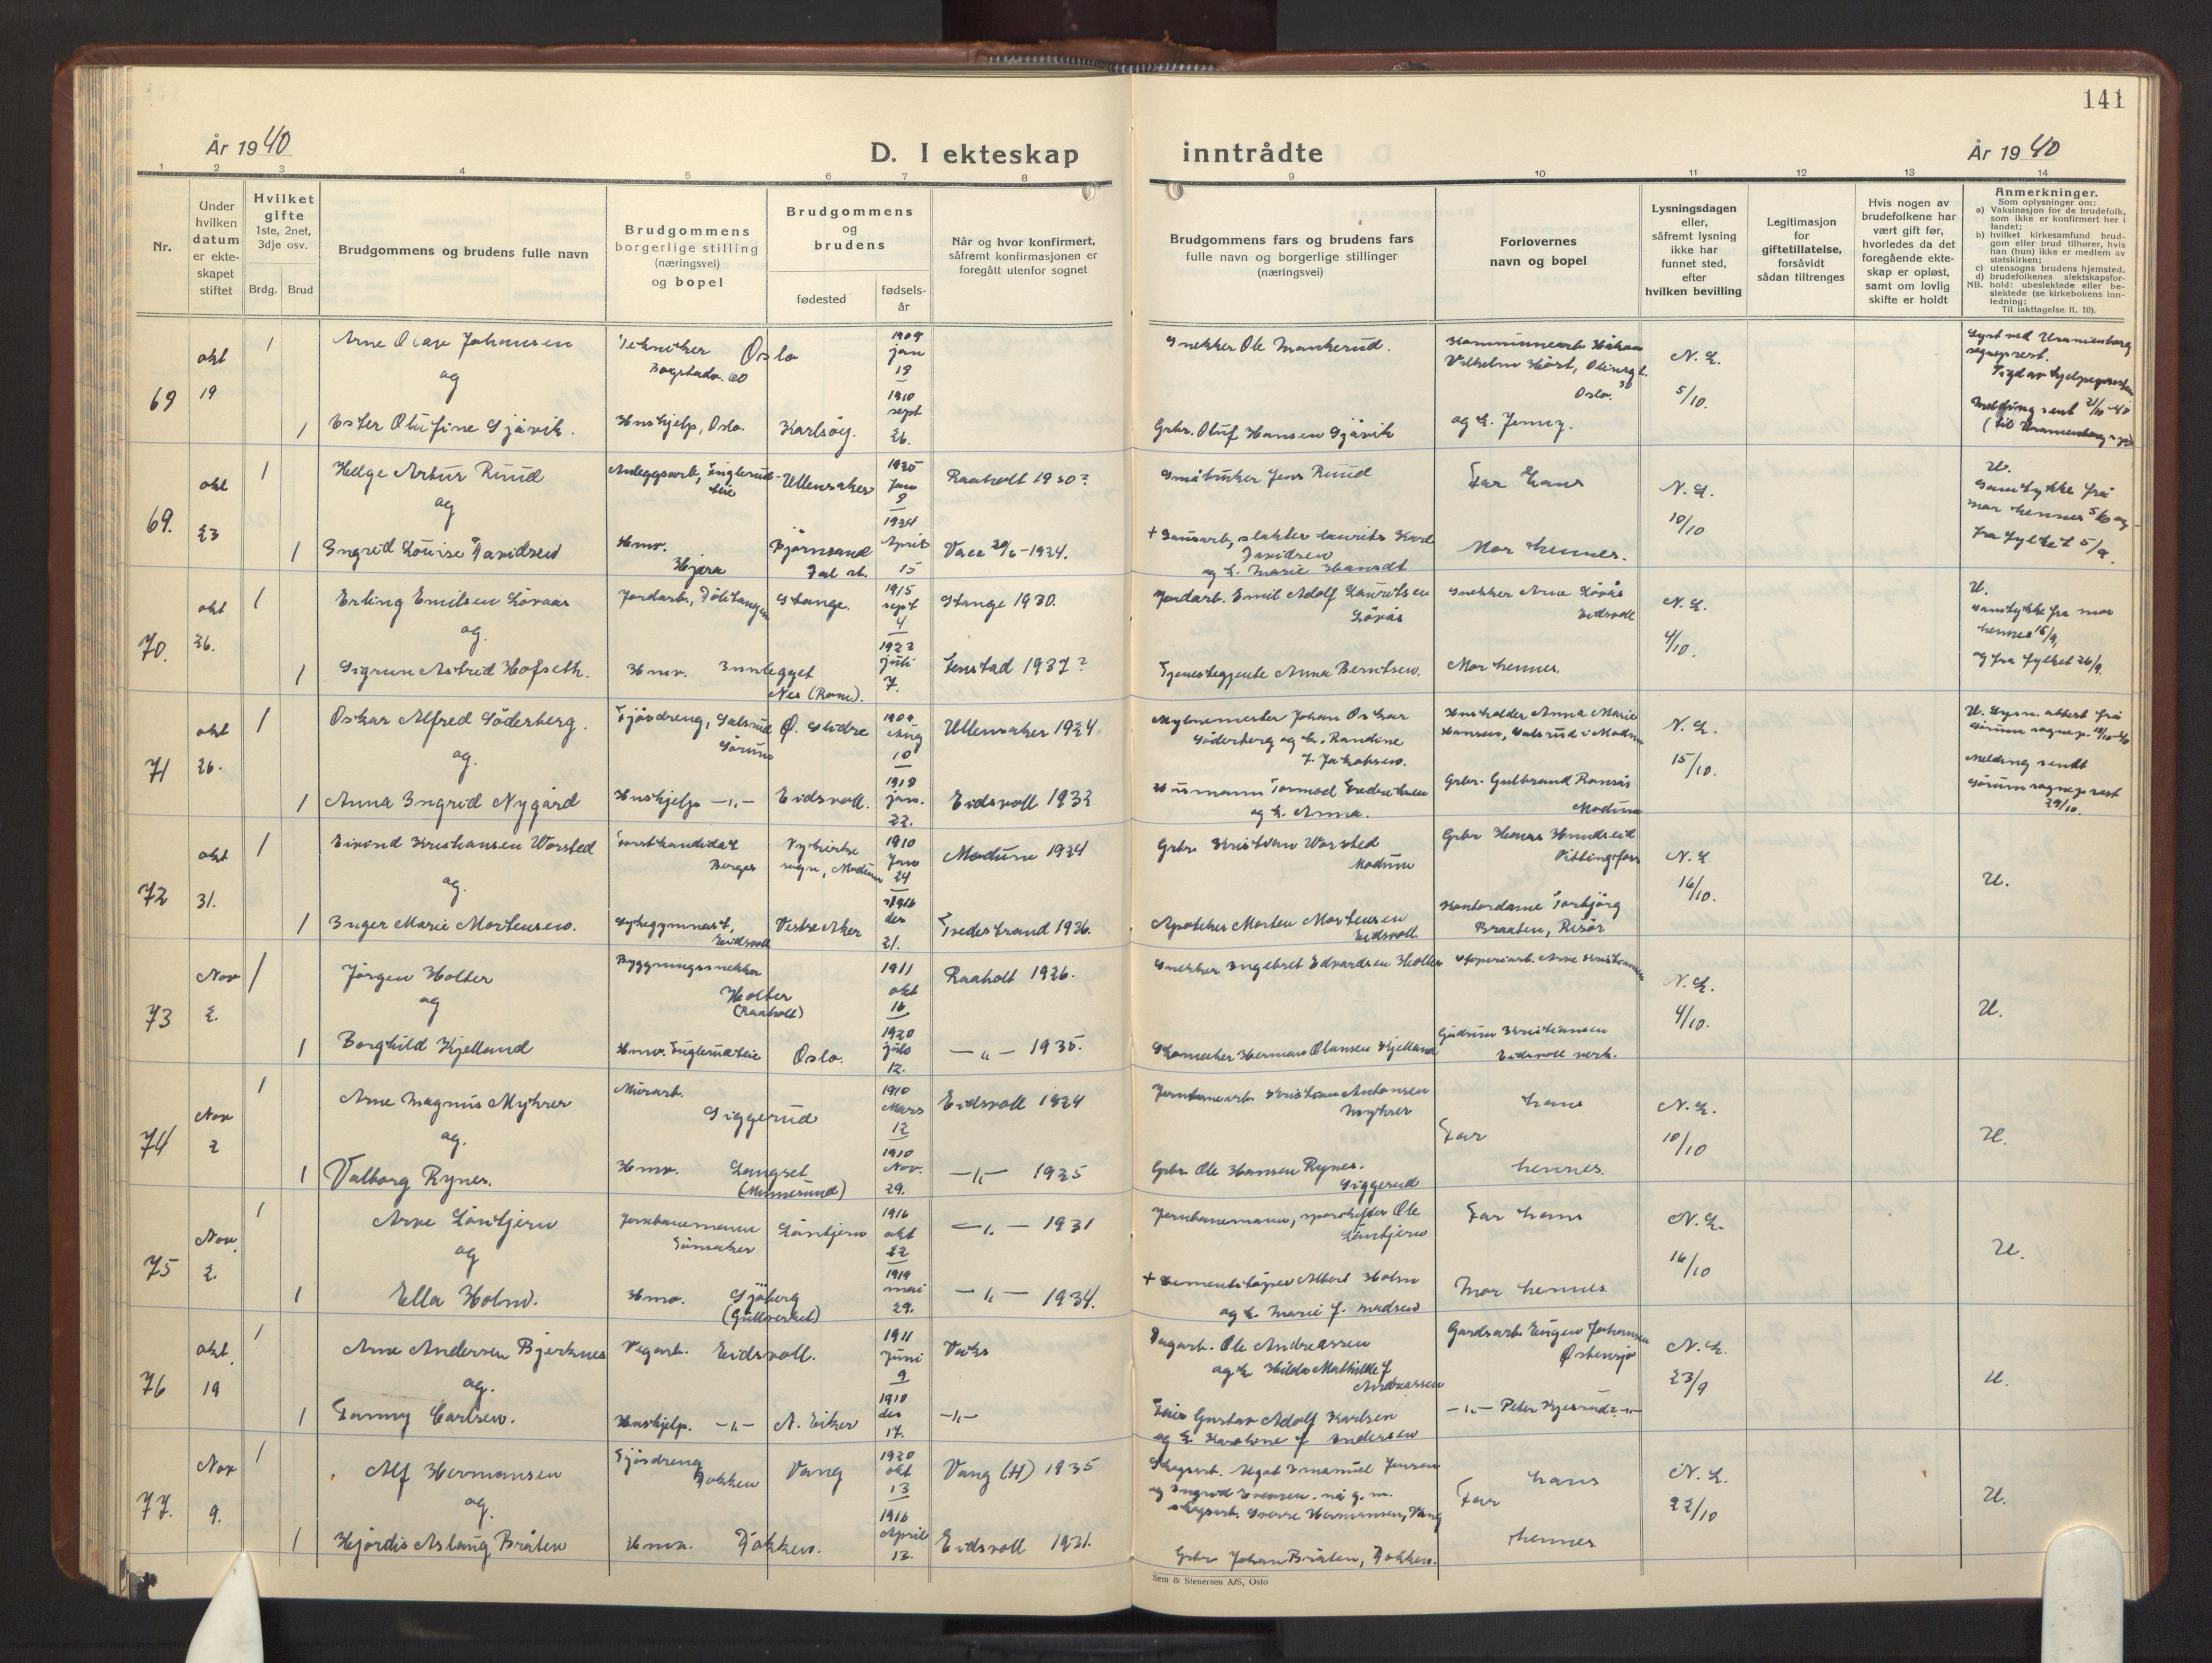 141
År 1940
D. I ekteskap inntrådte
År 1940
1 2 3 4 5 6 7 8 9 10 11 12 13 14
Nr.
Under hvilken datum er ekteskapet stiftet
Hvilket gifte 1ste, 2net, 3dje osv.
Brdg. Brud
Brudgommens og brudens fulle navn
Brudgommens borgerlige stilling (næringsvei) og bopel
Brudgommens og brudens
fødested
fødselsår
Når og hvor konfirmert, såfremt konfirmasjonen er foregått utenfor sognet
Brudgommens fars og brudens fars fulle navn og borgerlige stillinger (næringsvei)
Forlovernes navn og bopel
Lysningsdagen eller, såfremt lysning ikke har funnet sted, efter hvilken bevilling
Legitimasjon for giftetillatelse, forsåvidt sådan tiltrenges
Hvis nogen av brudefolkene har vært gift før, hvorledes da det foregående ekteskap er opløst, samt om lovlig skifte er holdt
Anmerkninger.
Som oplysninger om:
a) Vaksinasjon for de brudefolk, som ikke er konfirmert her i landet;
b) hvilket kirkesamfund brudgom eller brud tilhører, hvis han (hun) ikke er medlem av statskirken;
c) utensogns brudens hjemsted.
d) brudefolkenes slektskapsforhold: ubeslektede eller beslektede (se kirkebokens innledning;
NB.
Til iakttagelse II. 10).
69 okt 19 1 Arne Olav Johansen Tekniker Bogstadv. 60 Oslo 1909 jan 19 Snekker Ole Mankerud. Kommunearb. Håkon Vilhelm Høst, Oslo. N. L. 5/10.
og
1 Ester Olufine Gjåvik. Hushjelp, Oslo. Karlsøy. 1910 sept 26. Grbr. Oluf Hansen Gjåvik og h. Jenny. Melding sent 21/10-40
69. okt 23 1 Helge Artur Ruud Anleggsarb, Englerudteie Ullensaker Jan 9 Raaholt 1930? Småbruker Jens Ruud Far hans N. L. 10/10 U. Samtykke fra mor hennes 5/10 og fra fylket 5/9.
og
1 Ingrid Louise Davidsen Hmv. Hjera Bjørnsand Dal st. 1924 April 15 1934. + slakter Laurits Karl Davidsen og h. Marie Mor hennes.
70. okt 26. 1 Erling Emilsen Løvaas Jordarb., Dølitangen Stange. 1915 sept 4 Stange 1930. Jordarb. Emil Adolf Lauritsen Løvås Snekker Arne Løvås Eidsvoll N. L. 4/10. U. Samtykke fra mor hennes 15/9, og fra fylket 26/9.
og.
1 Sigrun Astrid Hofseth. Hmv. Innlegget Nes (Rome). 1922 juli 7. Tenstad 1937? Tjenestegjente Anna Berntsen. Mor hennes.
71 okt 26. 1 Oskar Alfred Söderberg. Fjøsdreng, Galsrud Sørum Ø. Slidre 1909 Aug 10 Ullensaker 1924 Johan Oskar Söderberg og h. Randine f. Jakobsen. Husholder Anna Marie Hansen, N. L. 15/10. Melding sendt Sørum sogneprest 29/10.
og.
1 Anna Ingrid Nygård Hushjelp —„— Eidsvoll. 1918 jan. 22. Eidsvoll 1932 og h. Anna. Grbr. Gulbrand Ransås Modum
72 okt 31. 1 Eivind Kristiansen Worsted Forstkandidat Berger Nykirke sogn, Modum 1910 Jan 24 Modum 1924 Grbr. Kristian Worsted Modum Grbr Hans Vittingsfoss N. L 16/10. U.
og.
1 Inger Marie Mortensen. Sykegymnast, Eidsvoll Vestre Aker 1916 des 21. Tvedestrand 1936. Apoteker Morten Mortensen Eidsvoll Kontordame Torbjørg Braaten, Risør
73 Nov 2. 1 Jørgen Holter Byggningssnekker Holter (Raaholt) 1911 okt 16 Raaholt 1926. Snekker Ingebret Edvardsen Holter Støperiarb. Arne Kristiansen N. L. 4/10. U.
og
1 Borghild Kjelland Hmv. Englerudteie Oslo. 1920 juli 12. —„— 1935. Skomaker Herman Olausen Kjelland Gudrun Kristiansen Eidsvoll verk.
74 Nov 2 1 Arne Magnus Myhrer Murarb. Siggerud 1910 Mars 12 Eidsvoll 1924 Jernbanearb. Kristian Antonsen Myhrer Far hans N. L. 10/10 U.
og.
1 Valborg Rynes. Hmv. Langset (Minnesund) 1910 Nov. 29. —„— 1925 Grbr. Ole Hansen Rynes. Siggerud hennes
75 Nov. 2. 1 Arne Løntjern Jernbanemann Lønntjern 1916 okt 22 —„— 1931 Jernbanemann, sporskifter Ole Løntjern Far hans N. L. 16/10 U.
og
1 Ella Holm. Hmv. Sjøberg (Gullverket) 1919 mai 29. —„— 1934. + Sementstøper Albert Holm og h. Marie f. Madsen Mor hennes
76 okt. 19 1 Arne Andersen Bjerknes Vegarb. Eidsvoll. 1911 Juni 9 Ole Andreassen og h Hilda Mathilde f Andreassen Gardsarb. Eugen Johansen Østensjø N. L. 23/9 U.
og.
1 Fanny Carlsen. Hushjelp. —„— N. Eiker 1910 des 17. —„— Gustav Adolf Karlsen og h Karoline f Andersen —„— Peter
77. Nov 9. 1 Alf Hermansen Fjøsdreng Dokken Vang 1920 okt 13 Vang (H) 1935 Skogsarb. Emanuel Jensen og Ingrid nå g. m. skogsarb. Sverre Hermansen, Vang Far hans N. L. 22/10 U.
og.
1 Hjørdis Aslaug Bråten Hmv. Dokken. 1916 April 13. Eidsvoll 1931. Grbr Johan Bråten, Dokken. hennes
Sem & Stenersen A/S, Oslo